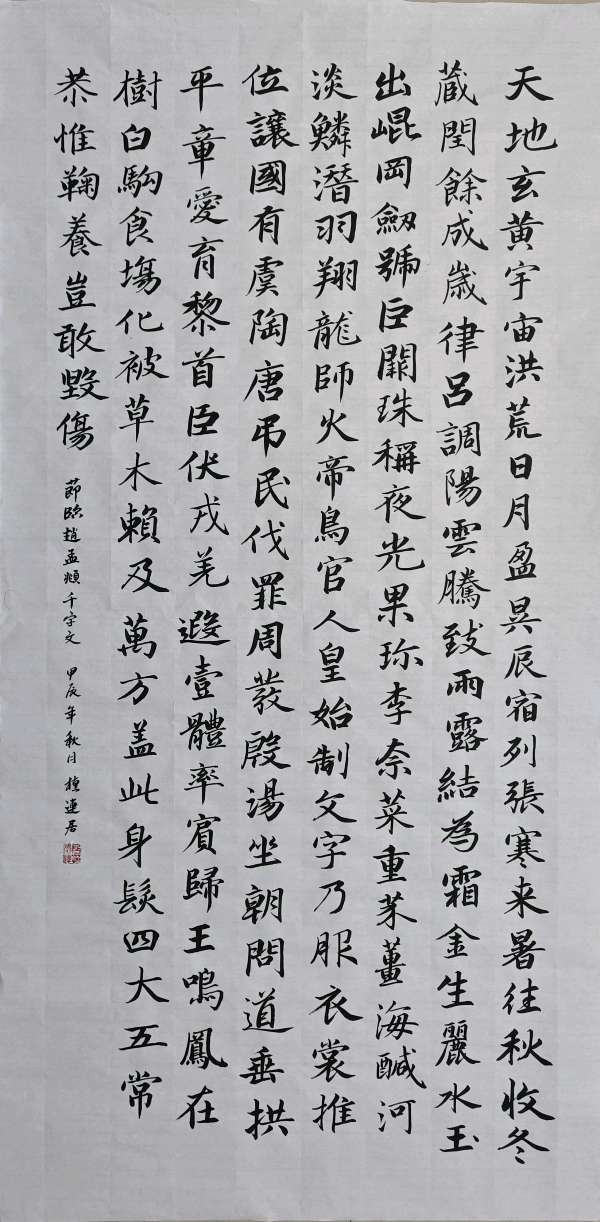 天地玄黃宇宙洪荒日月盈昃辰宿列張寒来暑往秋收冬
蔵閏餘成歲律呂調陽雲騰致雨露結為霜金生麗水玉
出崐岡劒號巨闕珠稱夜光果珎李柰菜重芥薑海鹹河
淡鱗潛羽翔龍師火帝鳥官人皇始制文字乃服衣裳推
位讓國有虞陶唐弔民伐罪周發殷湯坐朝問道垂拱
平章愛育黎首臣伏戎羌遐壹體率賓歸王鳴鳳在
樹白駒食場化被草木賴及萬方盖此身髮四大五常
恭惟鞠養豈敢毀傷
節臨趙孟頫千字文 甲辰年秋月 蓮居